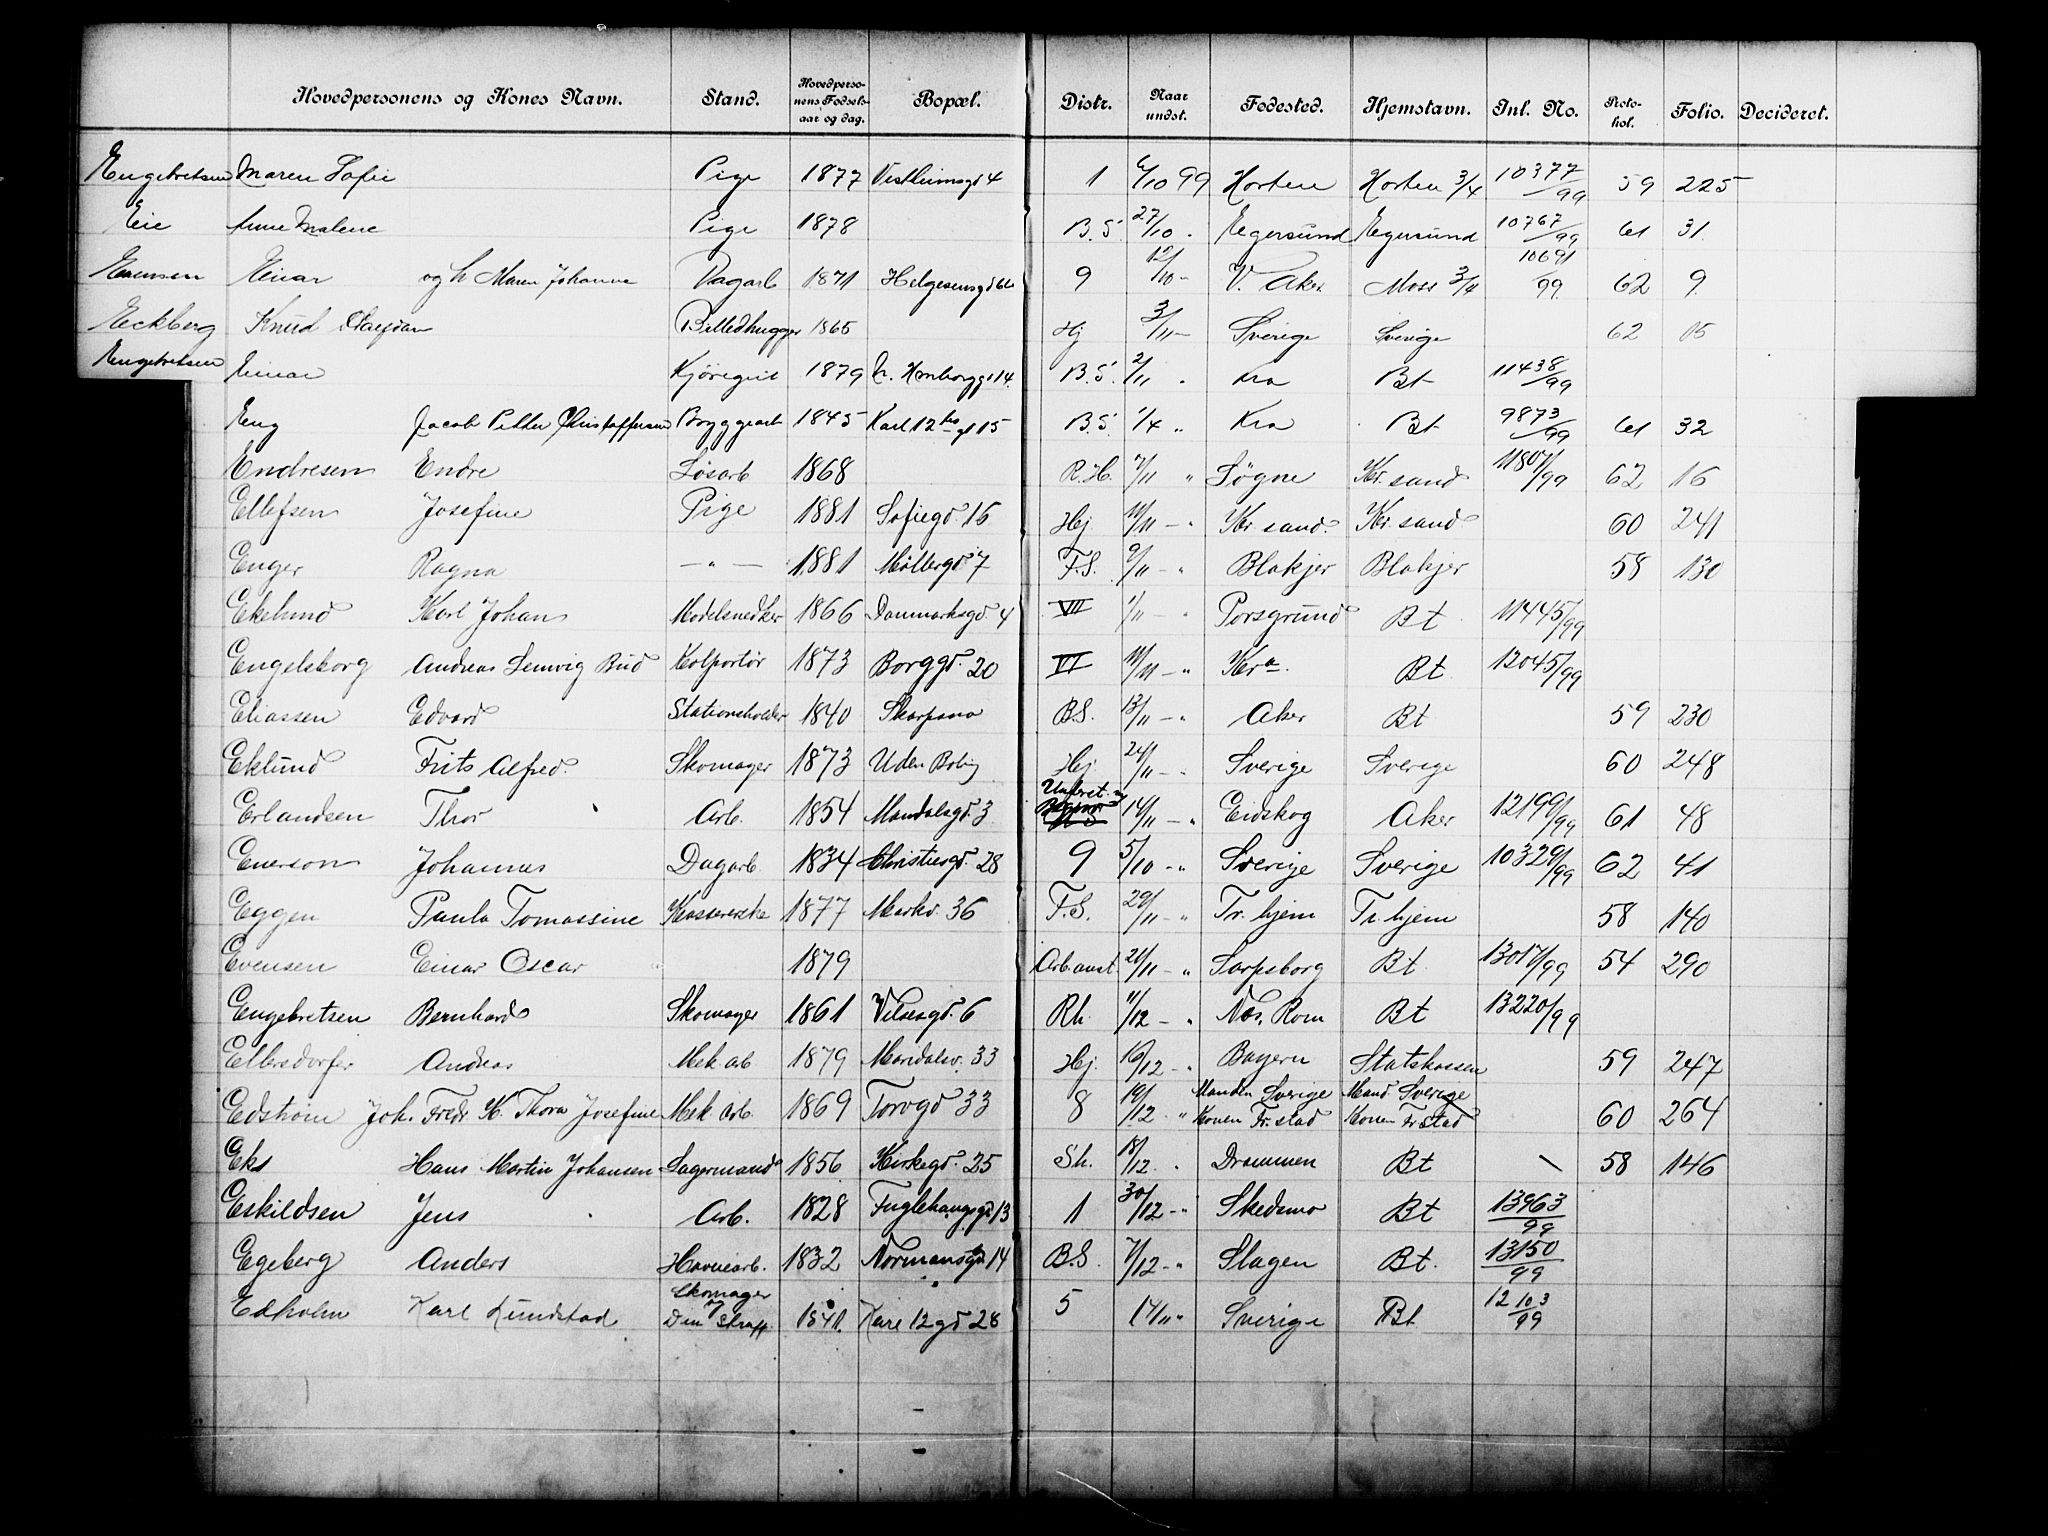 Hovedpersonens og Kones Navn. Stand. Hovedpersonens Fødselsaar og dag. Bopæl. Distr. Naar undst. Fødested. Hjemstavn. Inl. No. Protokol. Folio. Decideret.
Engebretsen Maren Sofie Pige 1877 Vestheimsgd 4 1 6/10 99 Horten Horten 3/4 10377/99 59 225
Eie Anne Malene Pige 1878 B.S. 27/10 Egersund Egersund 10767/99 61 31
Evensen Einar og h. Maren Johanne Dagarb 1871 Helgesensgd 62 9 12/10 - V. Aker Moss 3/4 10691/99 62 9
Eckberg Knud Billedhugger 1865 Hj 3/11 - Sverige Sverige 62 15
Engebretsen Einar Kjøregut 1879 14 B.S. 2/11 " Kra Bt 11438/99
Eng Jacob Petter Christoffersen Bryggearb 1845 Karl 12tes gt 15 B.S. 1/4 " Kra Bt 9873/99 61 32
Endresen Endre Løsarb 1868 R.H. 7/11 " Søgne Kr.sand 11807/99 62 16
Ellefsen Josefine Pige 1881 Sofiegd. 16 Hj. 11/11 - " Kr.sand. Kr.sand. 60 241
Enger Ragna — " — 1881 Møllergd 7 F.S. 9/11 - " Blakjer Blakjer 58 130
Ekelund Karl Johan Modelsnedker 1866 Danmarksgd. 4 VII 1/11 - " Porsgrund Bt 11445/99
Engelskorg Andreas Lemvig Bud Kolportør 1873 Borggd. 20 VI 11/11 - " Kra. Bt 12045/99
Eliassen Edvard Stationsholder 1840 Skarpsno B.S. 13/11 - " Aker Bt 59 230
Eklund Frits Alfred. Skomager 1873 Uden Bolig Hj. 24/11 - " Sverige Sverige 60 248
Erlandsen Thor Arb. 1854 Mandalsgd. 3 14/11 - " Eidskog Aker 12199/99 61 48
Enerson Johannes Dagarb 1834 Christiesgd. 28 9 5/10 - " Sverige Sverige 10329/99 62 41
Eggen Paula Tomassine Kassererske 1877 Markv. 36 F.S. 29/11 - " Tr.hjem Tr.hjem 58 140
Evensen Einar Oscar 1879 Arb.anst. 21/11 - " Sarpsborg Bt 13017/99 54 290
Engebretsen Bernhard Skomager 1861 Vilsesgd. 6 Rh. 11/12 - " Nes, Rom Bt 13220/99
Ellersdorfer Andreas Mek. arb 1879 Maridalsv. 33 Hj. 16/12 - " Bayern Statskassen 59 247
Edstrøm Joh. Fredr. K. Thora Josefine Mek. Arb. 1869 Torvgd 33 8 19/12 " Manden Sverige Konen Fr.stad Mand. Sverige Konen Fr.stad 60 264
Eks Hans Martin Johansen Lagermand 1856 Kirkegd. 25 Sh. 18/12 " Drammen Bt 58 146
Eskildsen Jens Arb. 1828 Fuglehaugsgd 13 1 30/12 - " Skedsmo Bt 13963/99
Egeberg Anders Havnearb. 1832 Normansgd 14 B.S. 7/12 - " Slagen Bt. 13150/99
Edholm Karl Lundstad Skomager og 1841. Karl 12 gd 28 5 14/11 " Sverige Bt 12103/99